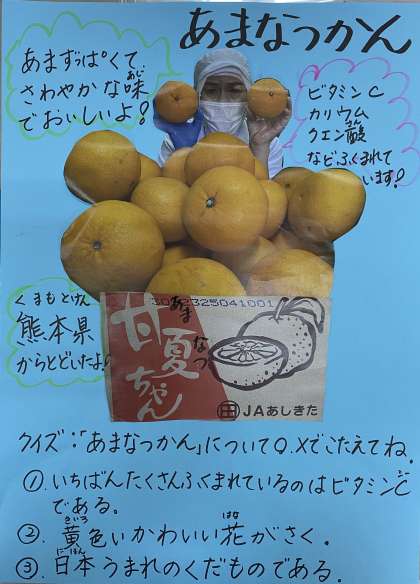 あまなつかん
あまずっぱくて
さわやかな味
あじ
でおいしいよ!
ビタミンC
カリウム
クエン酸
さん
などふくまれて
います!
くまもとけん
熊本県
からとどいたよ
302325041001
あま
なつ
甘夏ちゃん
JAあしきた
クイズ:「あまなつかん」について○.×でこたえてね.
①.いちばんたくさんふくまれているのはビタミンC
である。
きいろ
はな
②.黄色いかわいい花がさく。
にほん
③.日本うまれのくだものである.